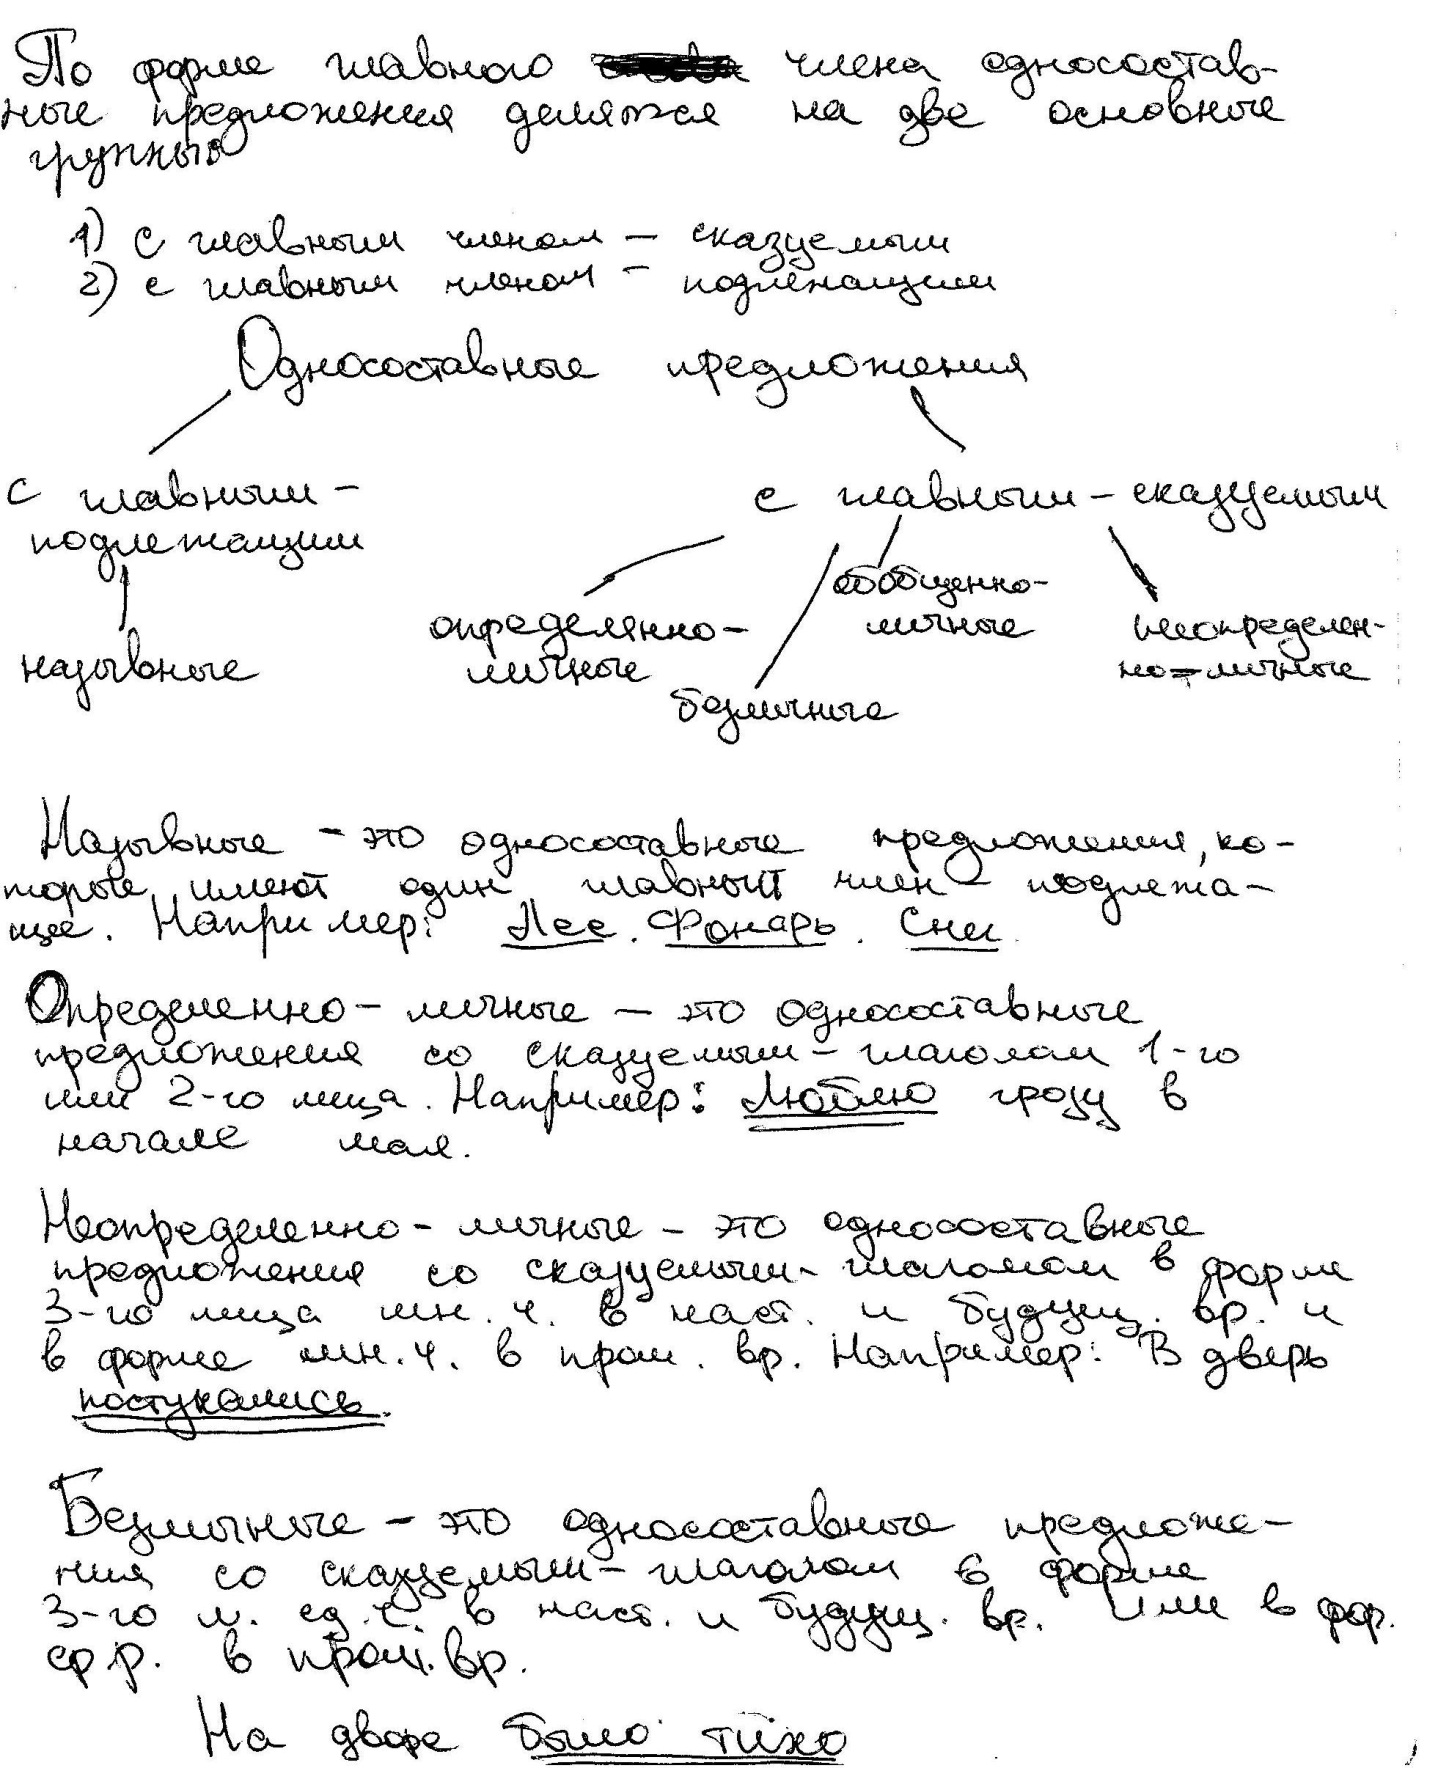 По форме главного члена односостав-
ные предложения делятся на две основные
группы:
1) с главным членом - сказуемым
2) с главным членом - подлежащим
Односоставные предложения
с главным - с главным - сказуемым
подлежащим
обобщенно-
определенно- личные неопределен-
назывные личные но-личные
безличные
Назывные - это односоставные предложения, ко-
торые имеют один главный член - подлежа-
щее. Например: Лес. Фонарь. Сны.
Определенно-личные - это односоставные
предложения со сказуемым-глаголом 1-го
или 2-го лица. Например: Люблю грозу в
начале мая.
Неопределенно-личные - это односоставные
предложения со сказуемым-глаголом в форме
3-го лица мн.ч. в наст. и будущ. вр. и
в форме мн.ч. в прош. вр. Например: В дверь
постукались.
Безличные - это односоставные предложе-
ния со сказуемым-глаголом в форме
3-го л. ед.ч. в наст. и будущ. вр. или в фор.
ср.р. в прош. вр.
На дворе было тихо